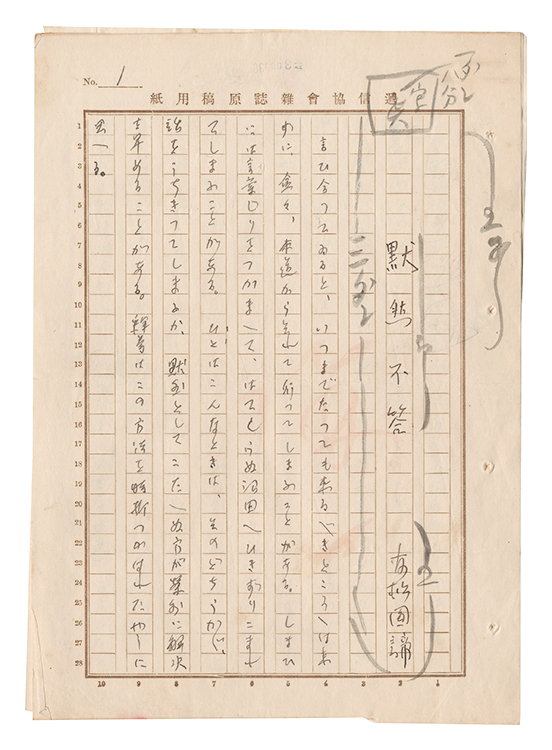 No. 1
通信協會雜誌原稿用紙
默然不答
友松圓諦
言ひ合つてゐると、いつまでたつても来るべきところへは来
ずに、愈々、本道から外れて行つてしまふことがある。しまひ
には言葉じりをつかまへて、はてしらぬ沼田へひきずりこまれ
てしまふことがある。ひとはこんなときは、どちらかが、
話をうちきつてしまふか、默然としてこたへぬ方が案外に解決
を早めることがある。釋尊はこの方法を時折つかはれたやうに
思へる。